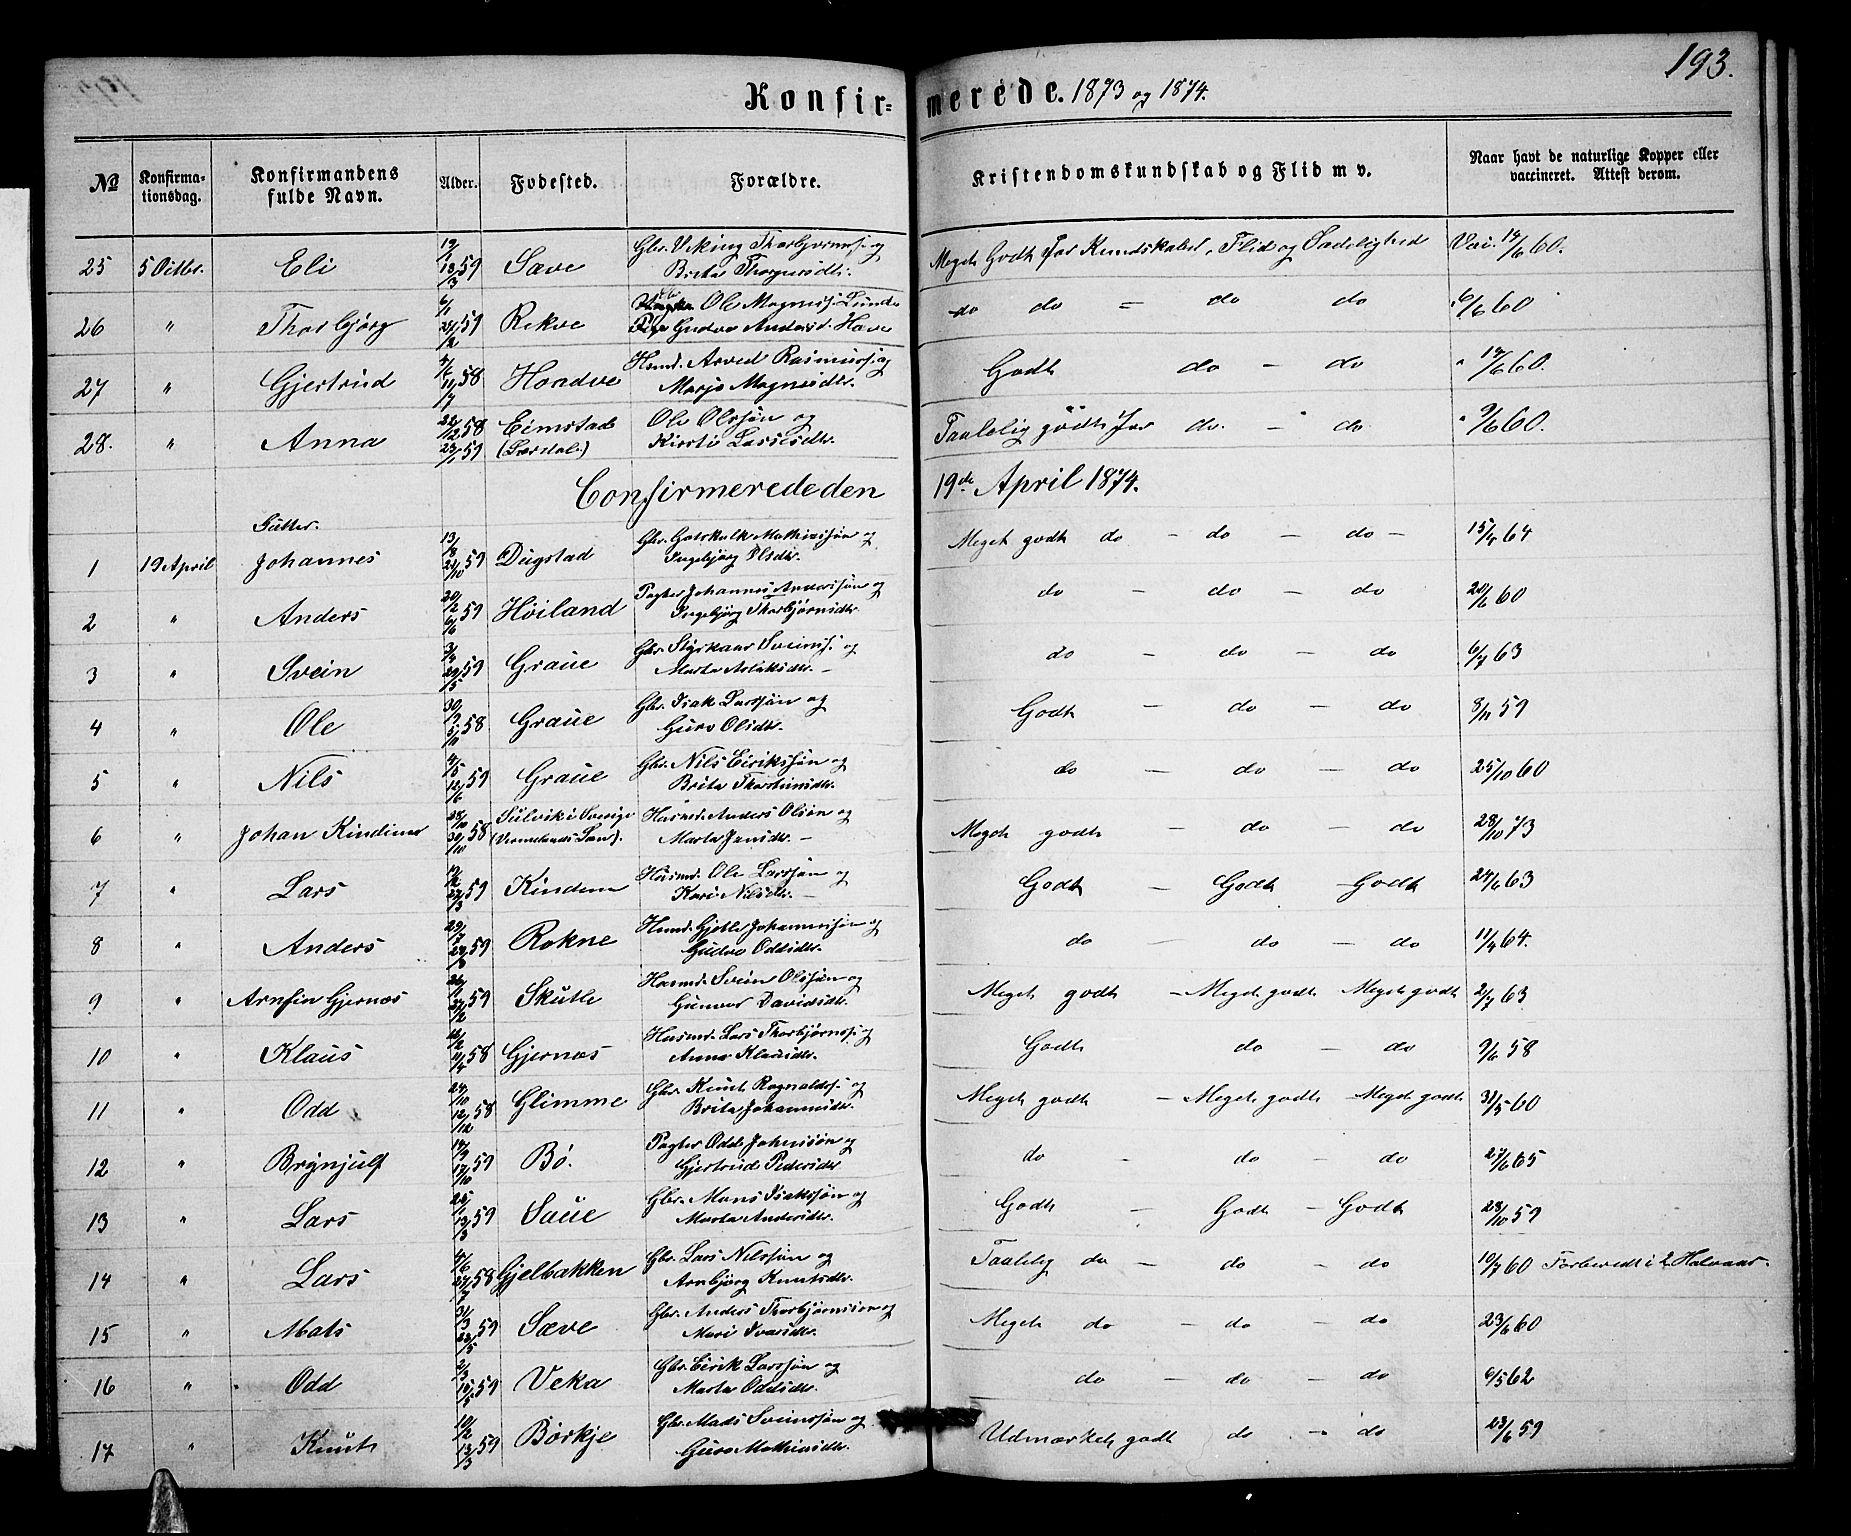 193.
Konfirmerede. 1873 og 1874.
№ Konfirmationsdag. Konfirmandens fulde Navn. Alder. Fødested. Forældre. Kristendomskundskab og Flid m v. Naar havt de naturlige Kopper eller vaccineret. Attest derom.
25 5 Octbr. Eli 59 Sæve Gbr. Viking Thorbjørnss. og Brita Thorgersdtr. Meget Godt for Kundskaber, Flid og Sædelighed Vac. 60.
26 " Thorbjørg 59 Rekve Ole Magness. Lunde Pige Gudve Andersd. Hæve do do = do do 6/6 60
27 " Gjertrud 58 Hondve Husmd. Arved Rasmuss. og Marja Magnesdtr. Godt do - do " 60.
28. " Anna 22/12 58 23/1 59 Eimstad (Lærdal.) Ole Olssøn og Kirsti Lassesdtr. Taalelig godt for do. - do " 9/6 60.
Confirmerede den 19de April 1874.
Gutter.
1 19 April Johannes 13/8 59 Dugstad Gbr. Gotskalk Mathiassøn og Ingebjørg Olsdtr. Meget godt do - do - do - 15/4 64
2 " Anders 59 Høiland Pagter Johannes Anderssøn og Ingebjørg Thorbjørnsdtr. do - do - do 20/6 60
3 " Svein 59 Graue Gbr. Styrkaar Sveinss. og Marta Aslaksdtr. - do - do - do 6/7 63
4 " Ole 58 Graue Gbr. Isak Larssøn og Guro Olsdtr. Godt - do - do 8/11 59
5 " Nils 12/6 59 Graue Gbr. Nils Eirikssøn og Brita Thorsteinsdtr. do - do - do 25/10 60
6 " Johan Kindimo 28/10 58 30/10 Sulvik i Sverige (Vermelands Læn). Husmd. Anders Olsøn og Marta Jansdtr. - Meget godt - do - do 28/10 73
7 " Lars 59 Kindem Husmd. Ole Larssøn og Kari Nilsdtr. - Godt - Godt - Godt 24/6 63
8 " Anders 29/7 59 Rokne Husmd. Gjeble Johannessøn og Gudve Oddsdtr. do - do - do 11/4 64.
9 " Arnfin Gjernæs 59 Skutle Husmd. Svein Olssøn og Gunvor Davidsdtr. Meget godt - Meget godt Meget godt 2/7 63
10 " Klaus 58 Gjernæs Husmd. Lars Thorbjørnss. og Anna Klausdtr. Godt do - do 9/6 58
11 " Odd 24/10 58 12/12 Glimme Gbr. Knut Ragnaldss. og Brita Johannesdtr. Meget godt - Meget godt - Meget godt 31/5 60
12 " Brynjulf 59 Bø. Pagter Odd Johnssøn og Gjertrud Pedersdtr. do - do - do 27/6 65
13 " Lars 59 Saue Gbr. Mons Isakssøn og Marta Andersdtr. Godt - Godt - Godt 28/10 59
14 " Lars 58 Gjelbakken Gbr. Lars Nilssøn og Arnbjørg Knutsdtr. Taalelig do - do - do 10/7 60 Forberedt i 2 Halvaar.
15 " Mats 31/3 59 Sæve Gbr. Anders Thorbjørnssøn og Mari Ivarsdtr. Meget do - do - do 23/6 60
16 " Odd 59 Veka Gbr. Eirik Larssøn og Marta Oddsdtr. do - do - do 6/5 62
17 " Knut 10/2 59 13/3 Børkje Gbr. Mads Sveinssøn og Guro Mathiasdtr. Udmærket godt do - do 23/6 59